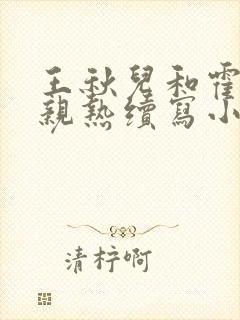 王秋兒和霍
親熱續寫小
清梓啊